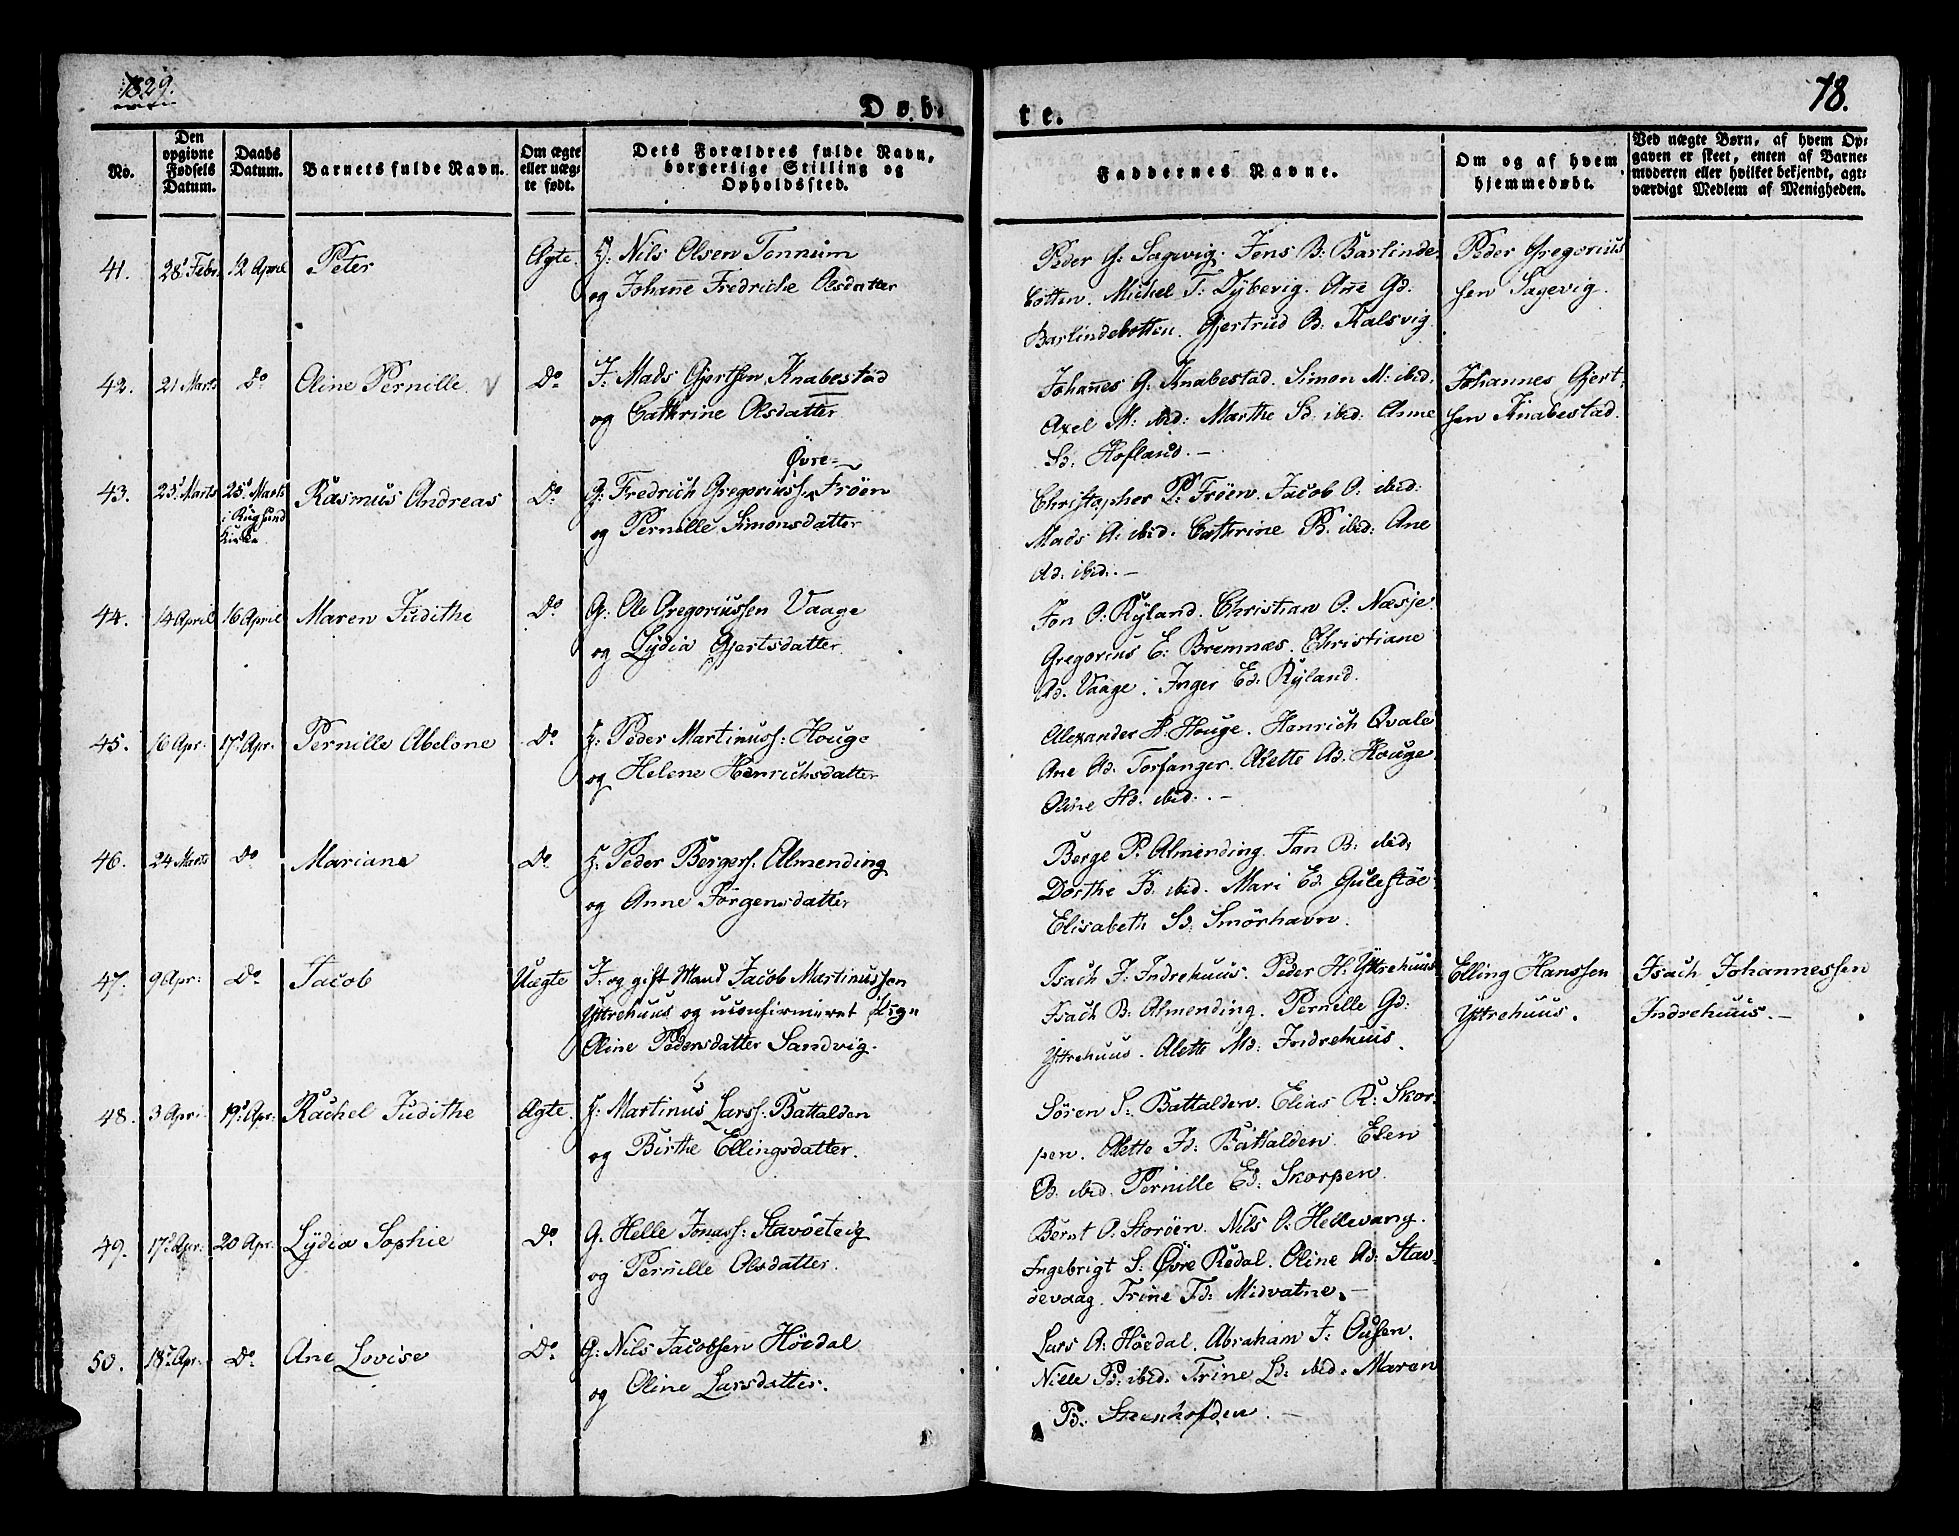 1829.
Døb-
te.
78.
No.
Den
opgivne
Fødsels
Datum.
Daabs
Datum.
Barnets fulde Navn.
Om ægte
eller uæg-
te født.
Dets Forældres fulde Navn,
borgerlige Stilling og
Opholdssted.
Faddernes Navne.
Om og af hvem
hjemmedøbt.
Ved uægte Børn, af hvem Op-
gaven er skeet, enten af Barne-
moderen eller hvilket bekjendt, agt-
værdigt Medlem af Menigheden.
41. 28 Febr. 12 April Peter Ægte. Nils Olsen Tonnum
og Johanne Fredriche Olsdatter
Peder G: Sagevig. Jens B: Barlinde-
botten. Michel T: Dybevig. Ane Gd:
Barlindebotten. Gjertrud Bd: Kalsvig.
Peder Gregorius
sen Sagevig.
42. 21 Marts Do Oline Pernille Do. Mads Gjertsen Knabestad
og Cathrine Olsdatter
Johannes G: Knabestad. Simon M: ibid.
Axel M: ibid: Marthe Sd: ibid: Anne
Sd: Hofland.-
Johannes Gjert-
sen Knabestad.
43. 25 Marts 25 Marts
i Rugsund
Kirke
Rasmus Andreas Do. G: Fredrich Gregoriuss: Øvre- Fröen
og Pernille Simonsdatter
Christopher P: Fröen. Jacob O: ibid:
Mads A: ibid. Cathrine P: ibid: Ane
Ad: ibid:.-
44. 14 April 16 April Maren Judithe Do. G: Ole Gregoriussen Vaage
og Lydia Gjertsdatter.
Jon O: Ryland. Christian O: Næsje.
Gregorius E: Bremnæs. Christiane
Ad. Vaage. Inger Ed: Ryland.
45. 16 Apr: 17 Apr: Pernille Abelone Do. Peder Martinuss: Houge
og Helene Henrichsdatter
Alexander P: Houge. Henrich Qvale
Ane Ad: Torfanger. Alette Ad: Houge
Oline Hd: ibid:.-
46. 24 Marts Do Mariane Do. Peder Bergers. Almending
og Anne Jørgensdatter
Berge P: Almending. Jan B: ibid:
Dorthe Jd: ibid. Mari Ed: Gulestöe
Elisabeth Sd: Smörhavn.
47. 9 Apr: Do. Jacob Uægte J: og gift Mand Jacob Martinussen
Yttrehuus og uconfirmeret Pige
Oline Pedersdatter Sandvig.
Isach J: Indrehuus. Peder H: Yttrehuus
Isach B: Almending. Pernille Gd:
Yttrehuus. Alette Md: Indrehuus.
Elling Hanssen
Yttrehuus.
Isach Johannessen
Indrehuus.-
48. 3 Apri. 19 Apr: Rachel Judithe Ægte. Martinus Larss: Battalden
og Birthe Ellingsdatter.
Sören S: Battalden. Elias R: Skor-
pen. Alette Jd: Battalden. Elen
B: ibid. Pernille Ed: Skorpen.
49. 17 Apr: 20 Apr. Lydia Sophie Do. G. Helle Jonass: Stavöeteig
og Pernille Olsdatter.
Bernt A: Storöen. Nils O: Hellevang.
Ingebrigt S: Øvre Rødal. Oline Ad: Stav-
öevaag. Trine Td: Midvatne.-
50. 18 Apr: Do. Ane Lovise Do. G: Nils Jacobsen Höedal
og Oline Larsdatter.
Lars A: Höedal. Abraham J: Ousen.
Nille Pd: ibid. Trine Ld: ibid. Maren
Td: Steenhofden.-